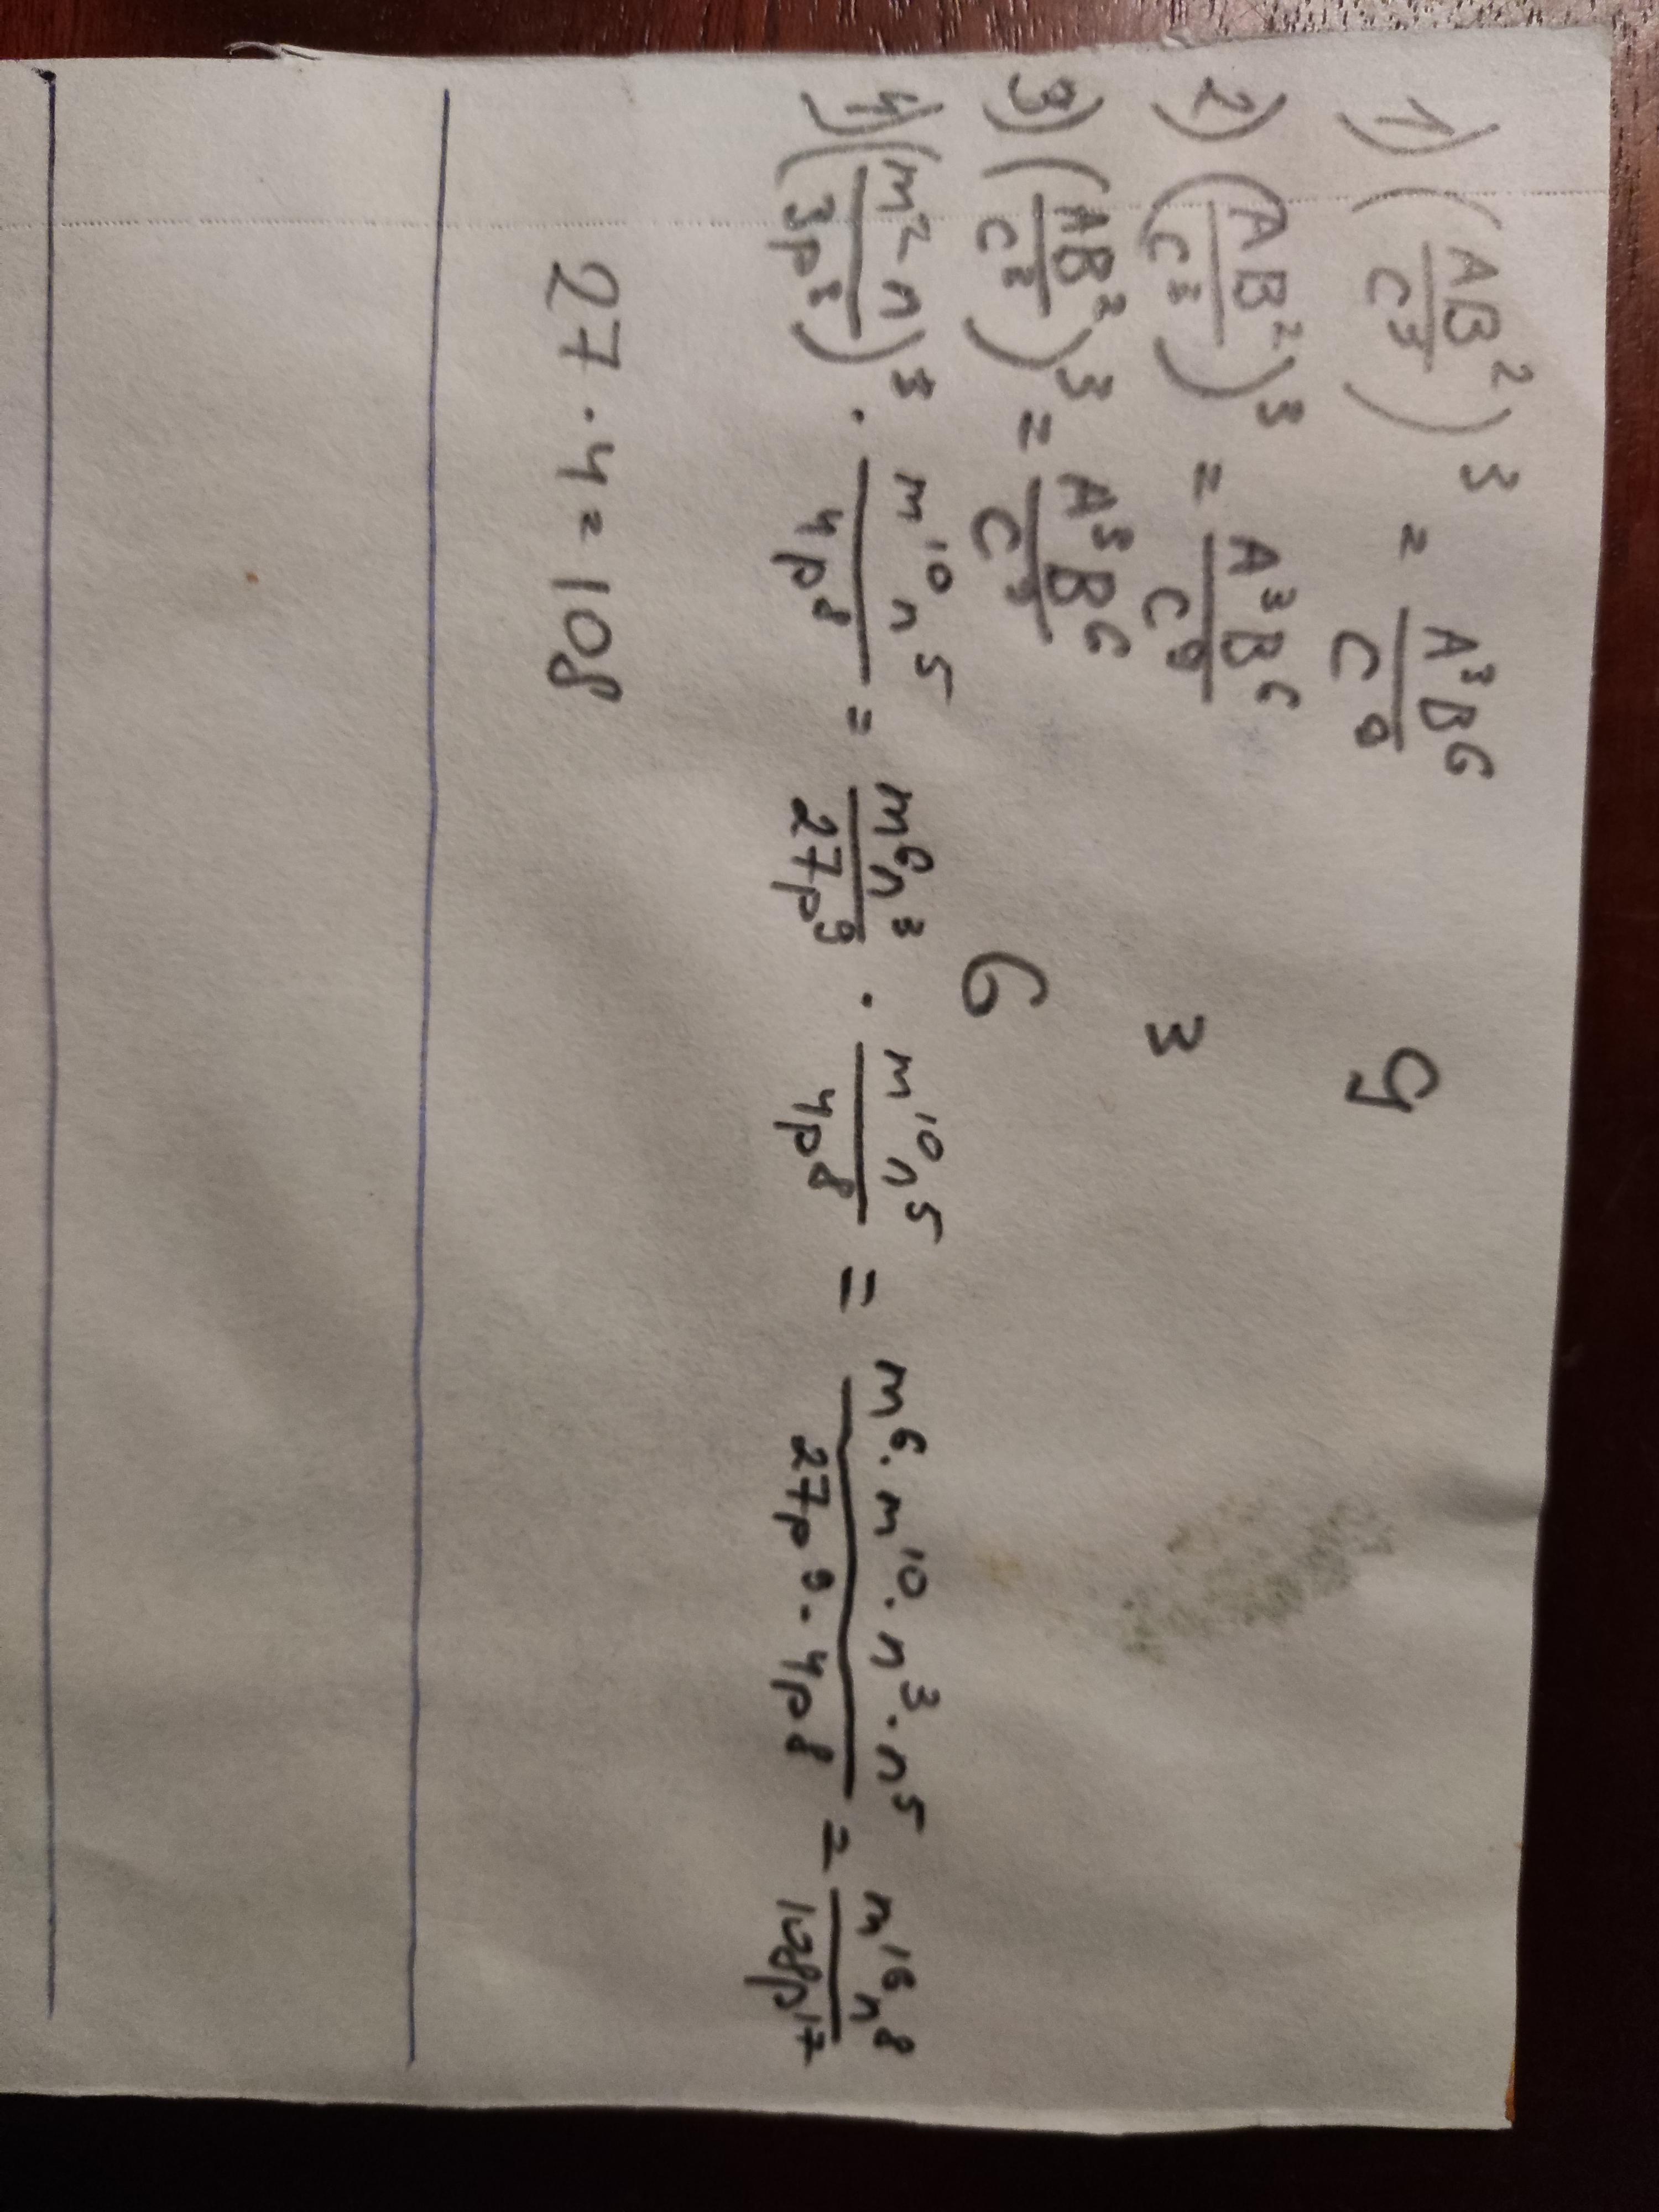 1) (AB²/C³)³ = A³B⁶/C⁹ 9
2) (AB²/C³)³ = A³B⁶/C⁹ 3
3) (AB²/C³)³ = A³B⁶/C⁹ 6
4) (m²n/3p³)³ · m¹⁰n⁵/4p⁸ = m⁶n³/27p⁹ · m¹⁰n⁵/4p⁸ = m⁶·m¹⁰·n³·n⁵/27p⁹·4p⁸ = m¹⁶n⁸/108p¹⁷
27·4=108